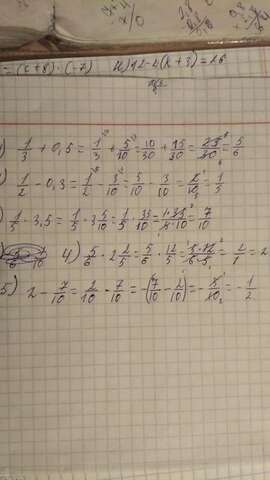 = (x+8)·(-7) 4) 12-2(x+3)=26
1/3 + 0,5 = 1/3 + 5/10 = 10/30 + 15/30 = 25/30 = 5/6
1/2 - 0,3 = 1/2 - 3/10 = 5/10 - 3/10 = 2/10 = 1/5
1/5 · 3,5 = 1/5 · 3 5/10 = 1/5 · 35/10 = 1·35/5·10 = 7/10
4) 5/6 · 2 2/5 = 5/6 · 12/5 = 5·12/6·5 = 2/1 = 2
5) 2 - 7/10 = 2/10 - 7/10 = -(7/10 - 2/10) = - 5/10 = - 1/2